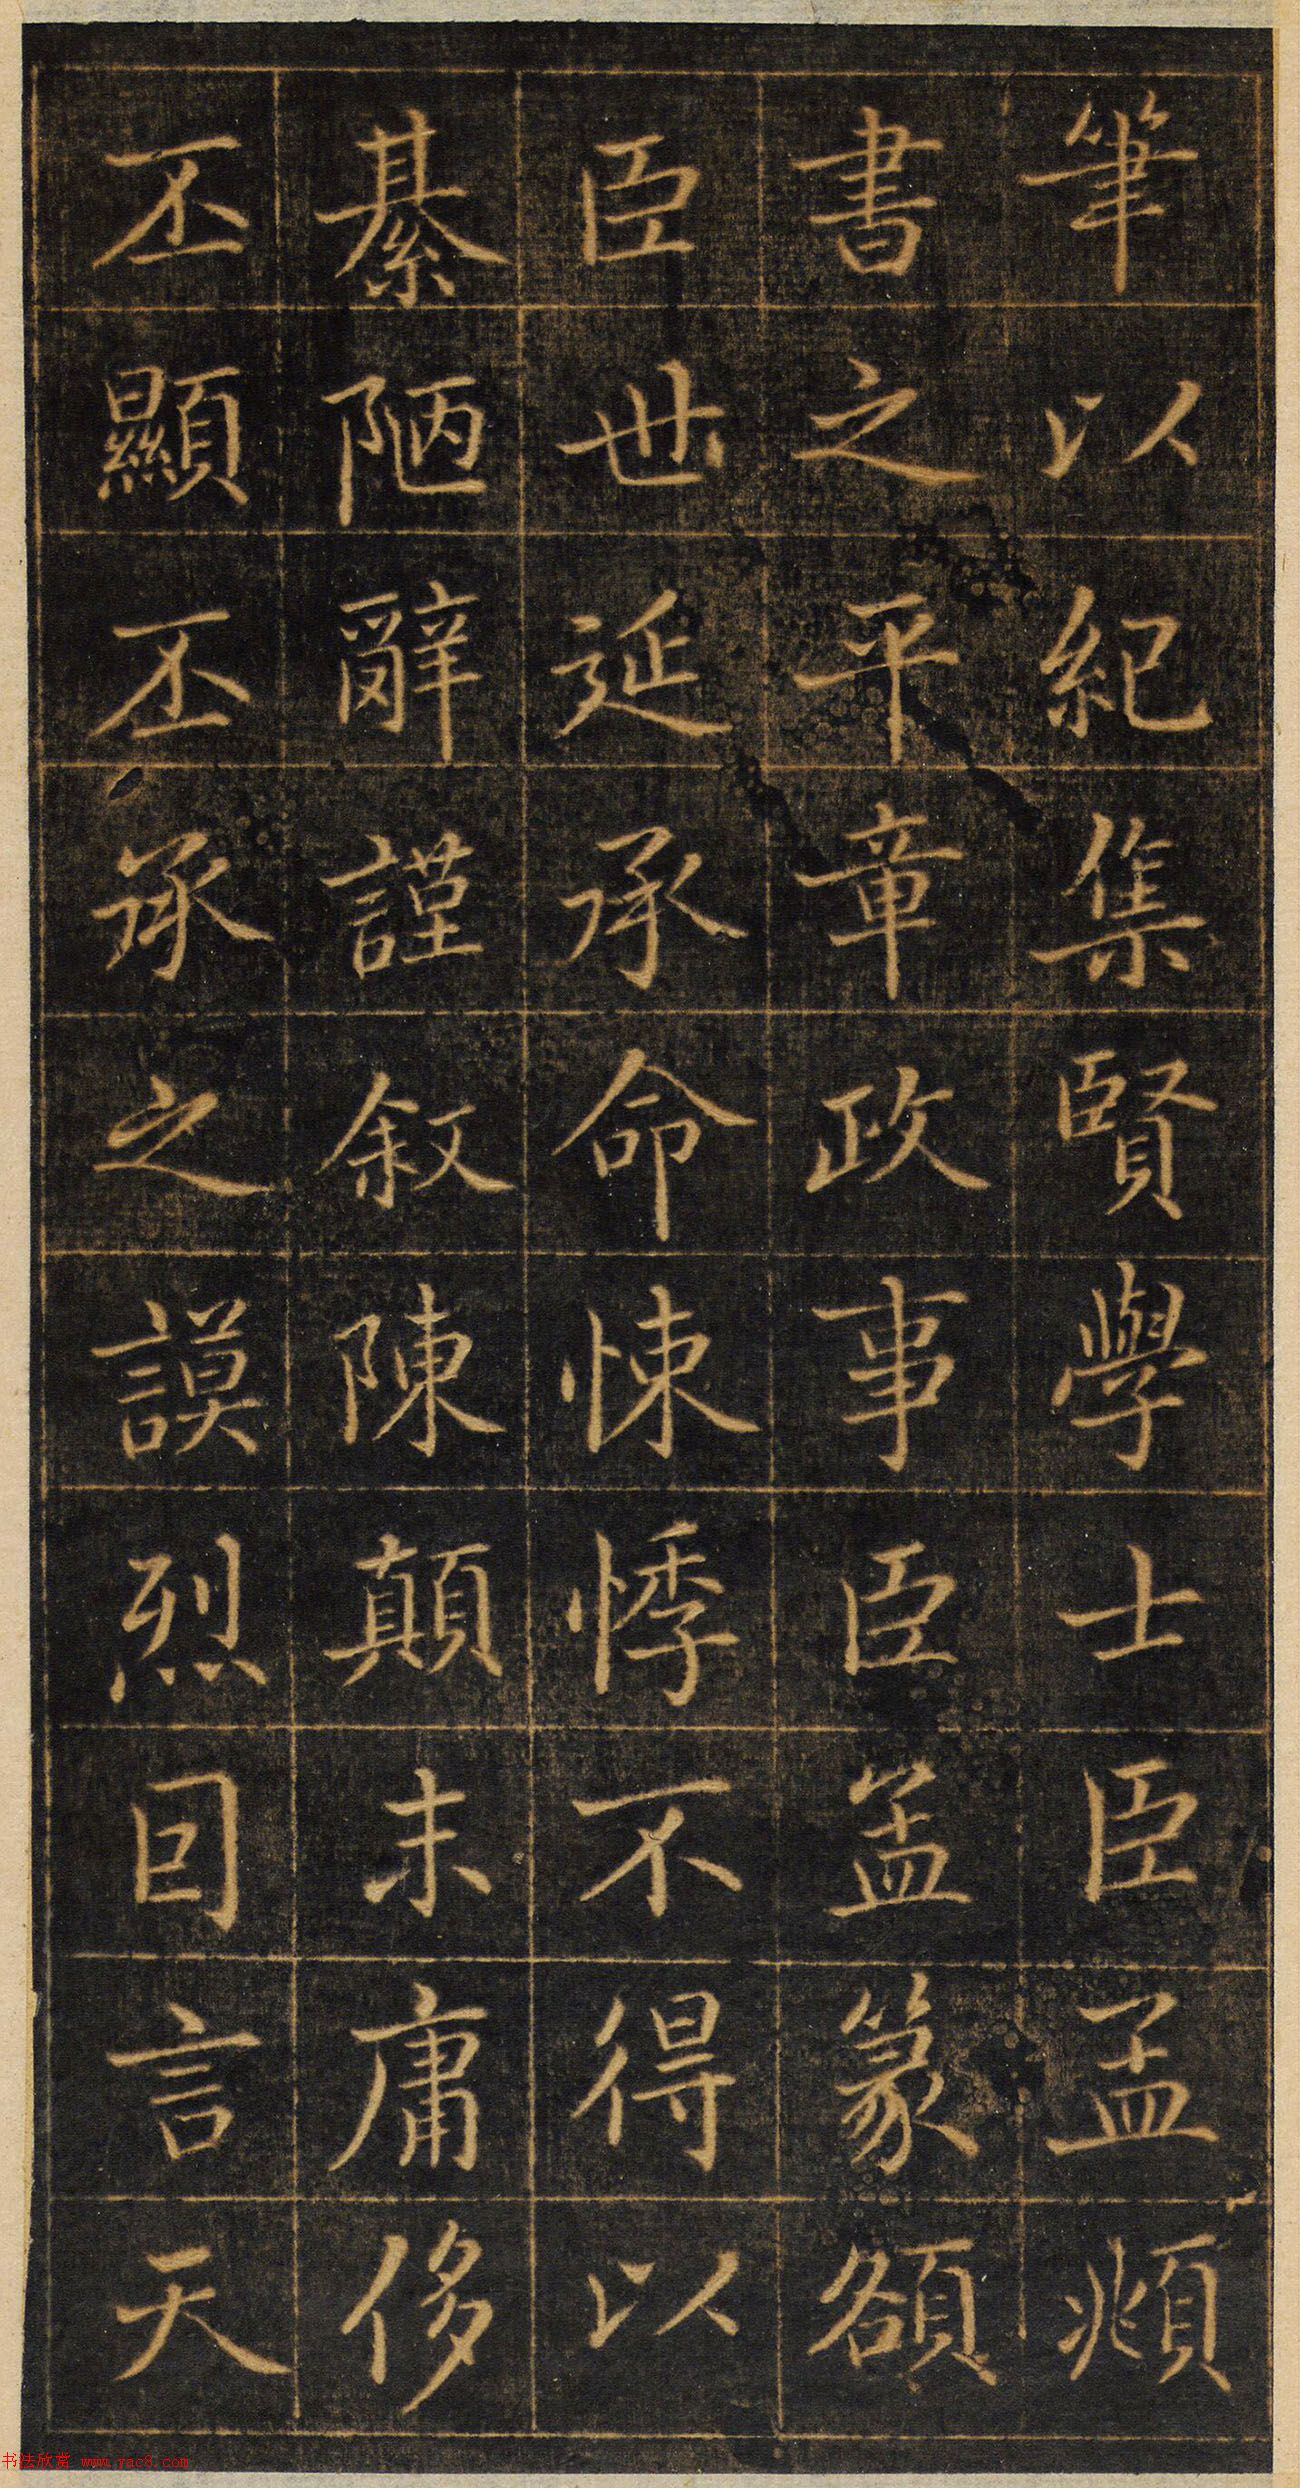 筆以紀集賢學士臣孟頫
書之平章政事臣盖篆額
臣世延承命悚悸不得以
綦陋辭謹叙陳顛末庸侈
丕顯丕承之謨烈囙言天
书法欣赏 www.yac8.com